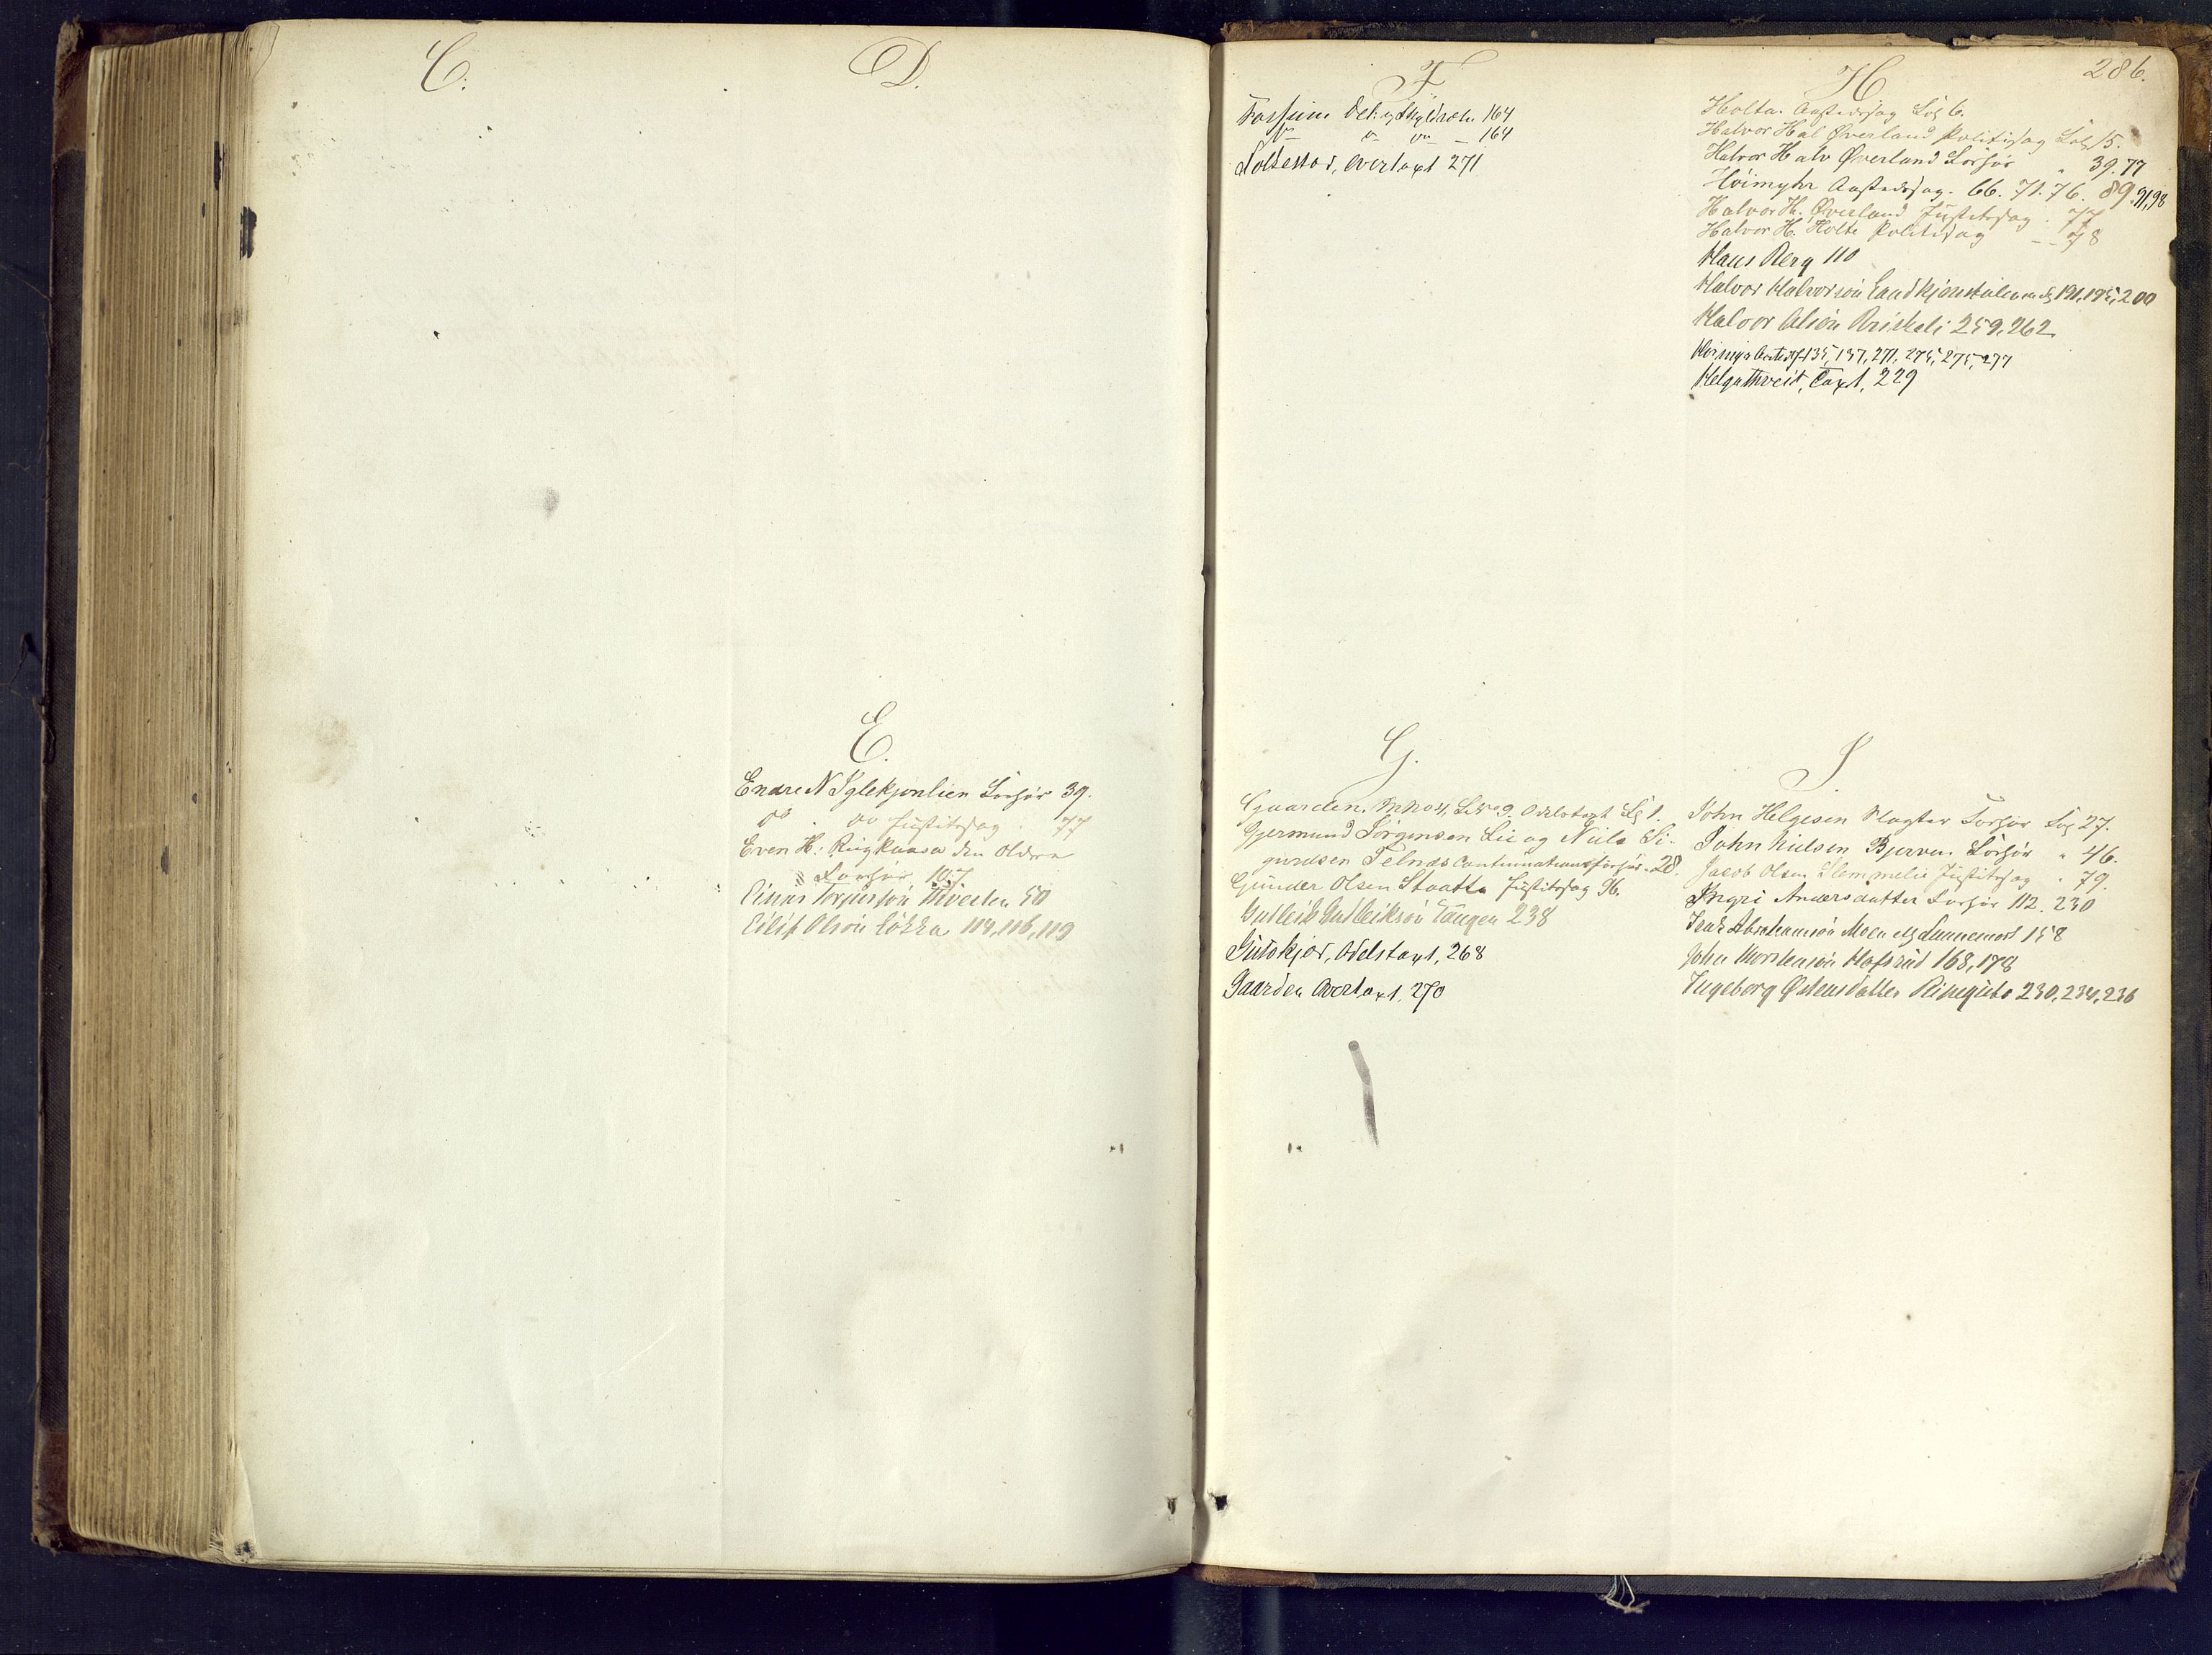 C.
D.
E.
Endre N Sglekjonlien Forhör 39.
do. do Justitssag. 77
Even H. Ringkaasa den Oldre
Forhör 107
Einar Torjussön 50
Eilif Olsön Lökka 114, 116, 119
286.
F.
Fossum Del. og Skyldsætn. 164
do do do 164
Folkestad, Overtaxt 271
G.
Gaarden, Odelstaxt Fol 1.
Gjermund Jörgensen Lie og Niels Si-
gurdsen Felnæs Continuationsforhör 28.
Gunder Olsen Staatta Justitssag 96.
Gutleik Gutleiksön Tangen 238
Gutskjör, Odelstaxt, 268
Gaarden Overtaxt, 270
H
Holta. Aastedssag Fol 6.
Halvor Hal Øverland Politisag Fol 15.
Halvor Halv Øverland Forhör " 39. 77
Hoimyhr Aastedssag. 66. 71. 76. 89. 91, 98
Halvor H. Øverland Justitssag. 77
Halvor H. Holte Politisag - - 78
Hans Berg 110
Halvor Halvorsön 191, 195, 200
Halvor Olsön 259, 262
135, 137, 271, 275, 275, 277
Helgathveit, Taxt, 229
I
John Helgesen Slagter Forhör Fol 27.
John Nielsen Bjerva. Forhör " 46.
Jacob Olsen Slemmelie Justitssag " 79.
Ingri Andersdatter Forhör 112. 230
Isak Abrahamsön Moen 158
John 168, 178
Ingeborg Østensdatter 230, 234, 236